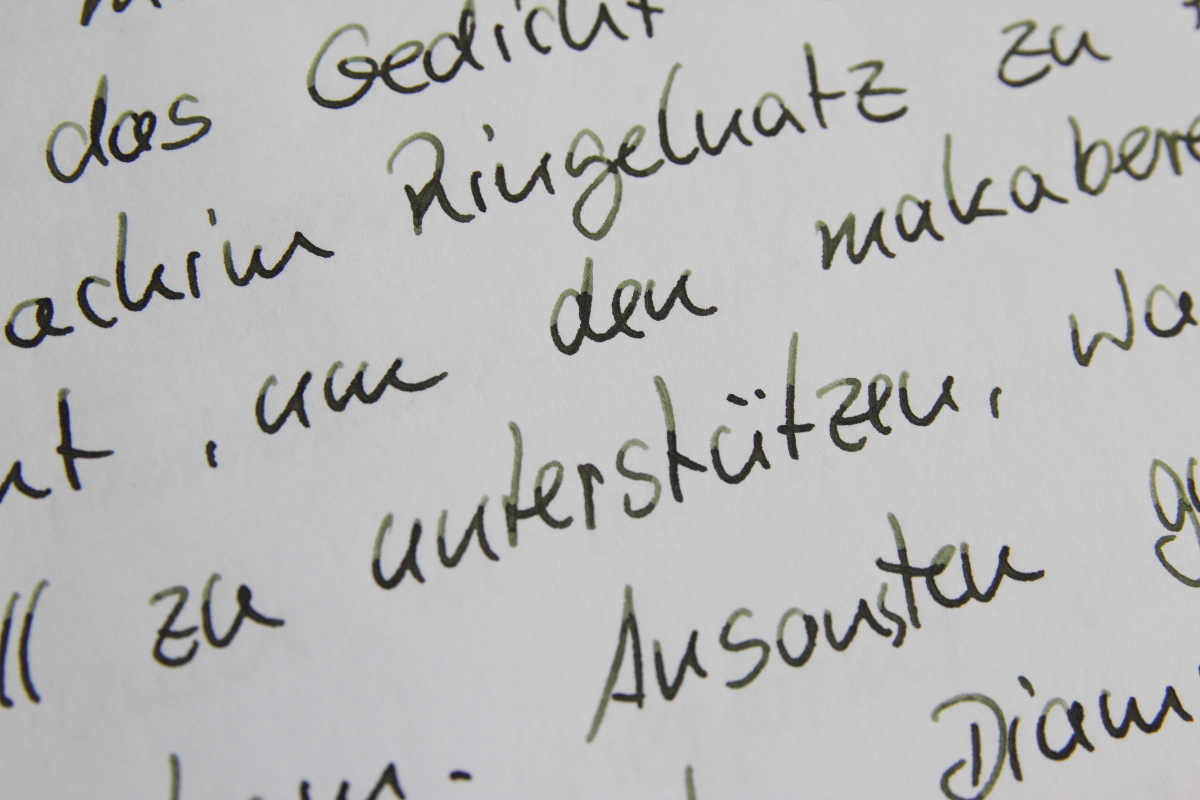 das Gedicht
achim Ringelnatz zu
nt, um den makabere
ll zu unterstützen, wa
Ansonsten
Diam